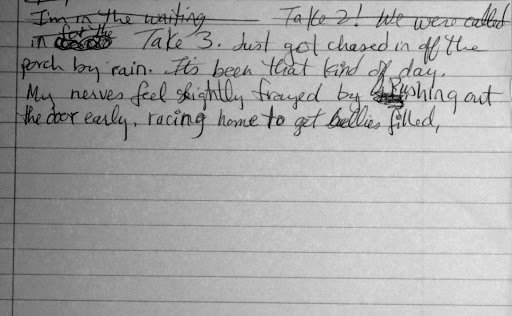 I'm in the waiting Take 2! We were called
in for the Take 3. Just got chased in off the
porch by rain. It's been that kind of day.
My nerves feel slightly frayed by rushing out
the door early, racing home to get bellies filled,